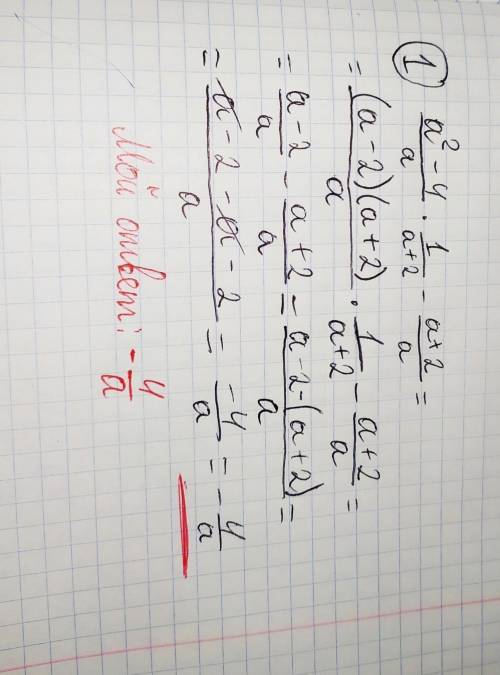 ① (a² - 4)/a · 1/(a+2) - (a+2)/a =
= ((a-2)(a+2))/a · 1/(a+2) - (a+2)/a =
= (a-2)/a - (a+2)/a = (a-2-(a+2))/a =
= (a-2-a-2)/a = (-4)/a = -4/a
Мой ответ: -4/a